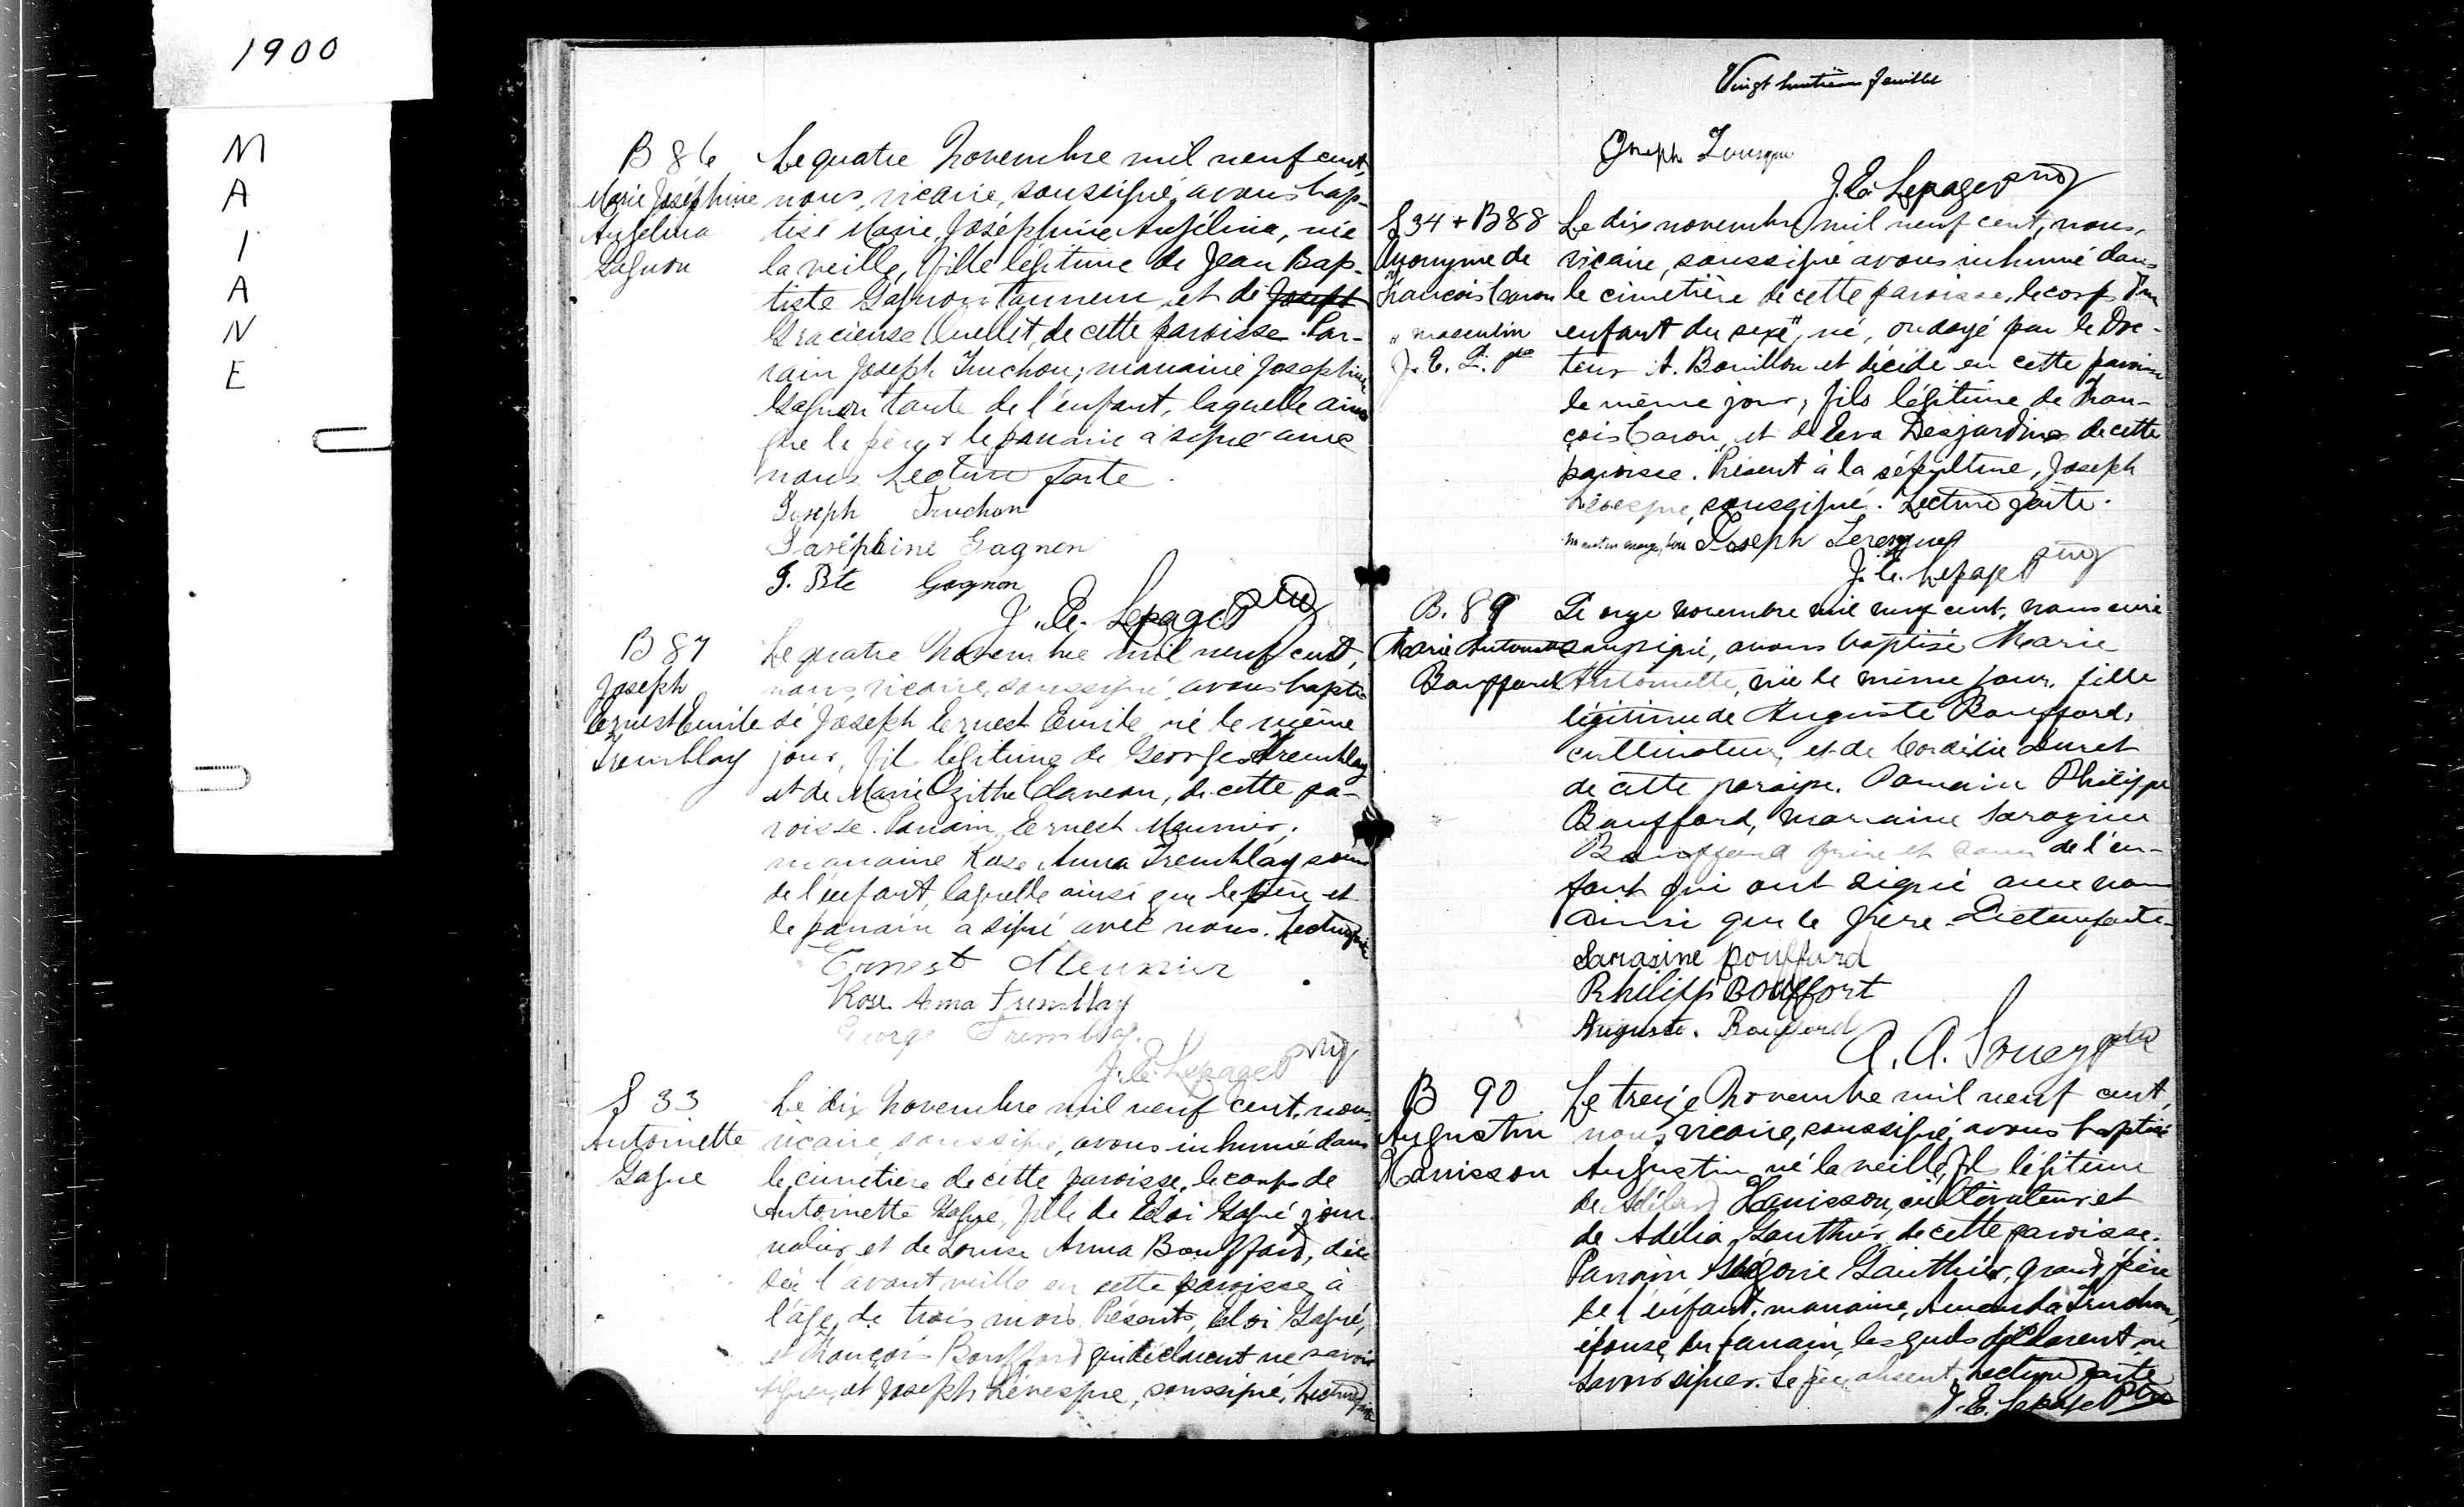 1900
M
A
I
A
N
E
B 86
Marie Joséphine
Angélina
Gagnon
Le quatre Novembre mil neuf cent,
nous, vicaire, soussigné, avons bap-
tisé Marie, Joséphine Angélina, née
la veille, fille légitime de Jean Bap-
tiste Gagnon tanneur et de Joseph
Gracieuse Ouellet, de cette paroisse. Par-
rain Joseph Truchon; marraine Joséphine
Gagnon tante de l'enfant, laquelle ainsi
que le père & le parrain a signé avec
nous. Lecture faite.
Joseph Truchon
Joséphine Gagnon
J. Bte Gagnon
J. E. Lepage Ptre
B 87
Joseph
Ernest Emile
Tremblay
Le quatre Novembre mil neuf cent,
nous, vicaire, soussigné, avons bapti-
sé Joseph Ernest Emile né le même
jour, fil légitime de Georges Tremblay
et de Marie Ozithe Claveau, de cette pa-
roisse. Parrain, Ernest Meunier;
marraine Rose Anna Tremblay soeur
de l'enfant, laquelle ainsi que le père et
le parrain a signé avec nous. Lecture faite
Ernest Meunier
Rose Anna Tremblay
George Tremblay.
J. E. Lepage Ptre
S 33
Antoinette
Gagné
Le dix Novembre mil neuf cent, nous,
vicaire, soussigné, avons inhumé dans
le cimetière de cette paroisse, le corps de
Antoinette Gagné, fille de Eloi Gagné jour-
nalier et de Louise Anna Bouffard, décé-
dée l'avant veille en cette paroisse à
l'âge de trois mois. Présents, Eloi Gagné,
et François Bouffard qui déclarent ne savoir
signer, et Joseph Lévesque, soussigné, Lecture faite
Vingt huitième feuillet
Joseph Levesque
J. E. Lepage Ptre
S 34 + B 88
Anonyme de
François Caron
" masculin
J. E. L. Ptre
Le dix novembre mil neuf cent, nous,
vicaire, soussigné avons inhumé dans
le cimetière de cette paroisse, le corps d'un
enfant du sexe", né, ondoyé par le Doc-
teur A. Bouillon et décédé en cette paroisse
le même jour, fils légitime de Fran-
çois Caron et de Eva Desjardins de cette
paroisse. Présent à la sépulture, Joseph
Lévesque, soussigné. Lecture faite.
Joseph Levesque
J. E. Lepage Ptre
B. 89
Marie Antoinette
Bouffard
Le onze novembre mil neuf cent, nous curé
soussigné, avons baptisé Marie
Antoinette, née le même jour, fille
légitime de Auguste Bouffard,
cultivateur, et de Cordélie Duret
de cette paroisse. Parrain Philippe
Bouffard, marraine Sarazine
Bouffard frère et soeur de l'en-
fant qui ont signé avec nous
ainsi que le père. Lecture faite
Sarrasine Bouffard
Philipp Bouffort
Auguste. Bouffard
A. A. Soucy Ptre
B 90
Augustin
Hamisson
Le treize Novembre mil neuf cent,
nous, vicaire, soussigné, avons baptisé
Augustin né la veille, fils légitime
de Adélard Hamisson, cultivateur et
de Adélia Gauthier, de cette paroisse.
Parrain Magloire Gauthier, grand père
de l'enfant; marraine, Amanda Truchon,
épouse du parrain, lesquels déclarent ne
savoir signer. Le père absent. Lecture faite
J. E. Lepage Ptre